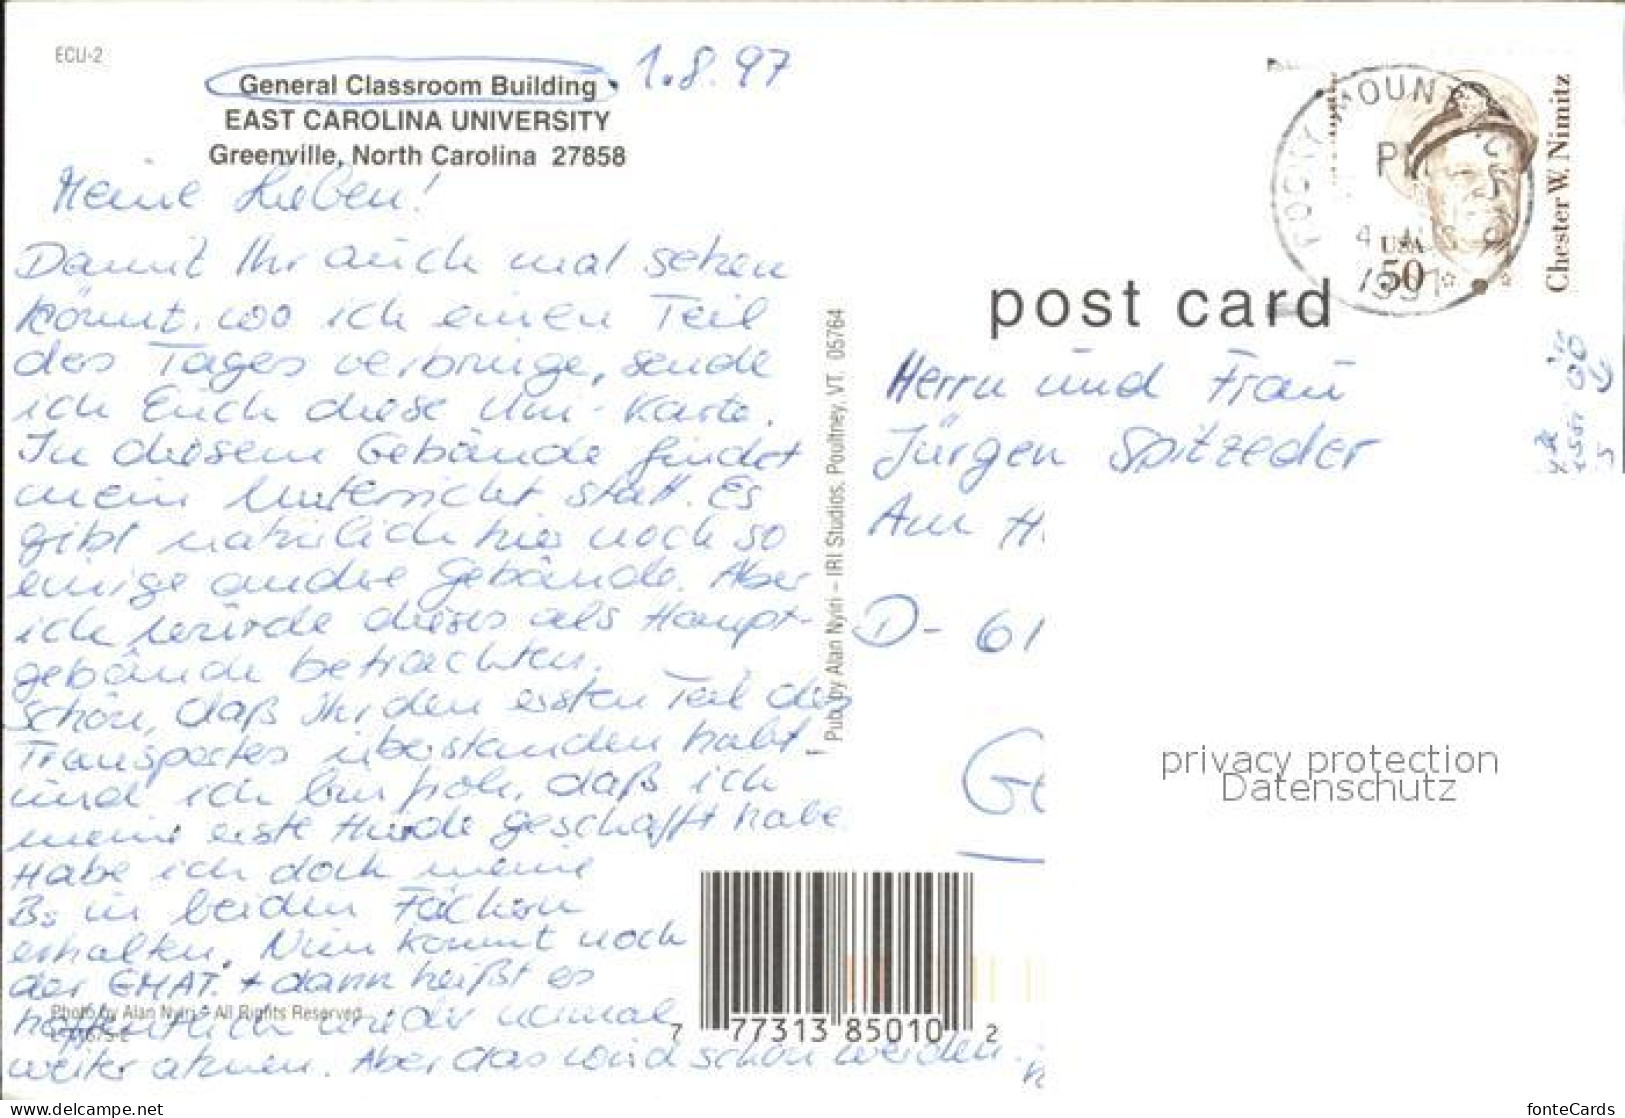 ECU-2
General Classroom Building • 1.8.97
EAST CAROLINA UNIVERSITY
Greenville, North Carolina 27858
Meine Lieben!
Damit Ihr auch mal sehen
könnt, wo ich einen Teil
des Tages verbringe, sende
ich Euch diese Uni-Karte.
In diesem Gebäude findet
mein Unterricht statt. Es
gibt natürlich hier noch so
einige andre Gebäude. Aber
ich würde dieses als Haupt-
gebäude betrachten.
Schön, daß Ihr den ersten Teil des
Transportes überstanden habt -
und ich bin froh, daß ich
meine erste Hürde geschafft habe.
Habe ich doch meine
Bs in beiden Fächern
erhalten. Nun kommt noch
der GMAT. + dann heißt es
hoffentlich wieder normal
weiter atmen. Aber das wird schon werden.
Photo by Alan Nyiri - All Rights Reserved
Pub. by Alan Nyiri – IRI Studios, Poultney, VT. 05764
post card
Chester W. Nimitz
USA
50
ROCKY MOUNT
1997
Herrn und Frau
Jürgen Spitzeder
Am H
D- 61
Ge
privacy protection
Datenschutz
7 77313 85010 2
www.delcampe.net
fonteCards